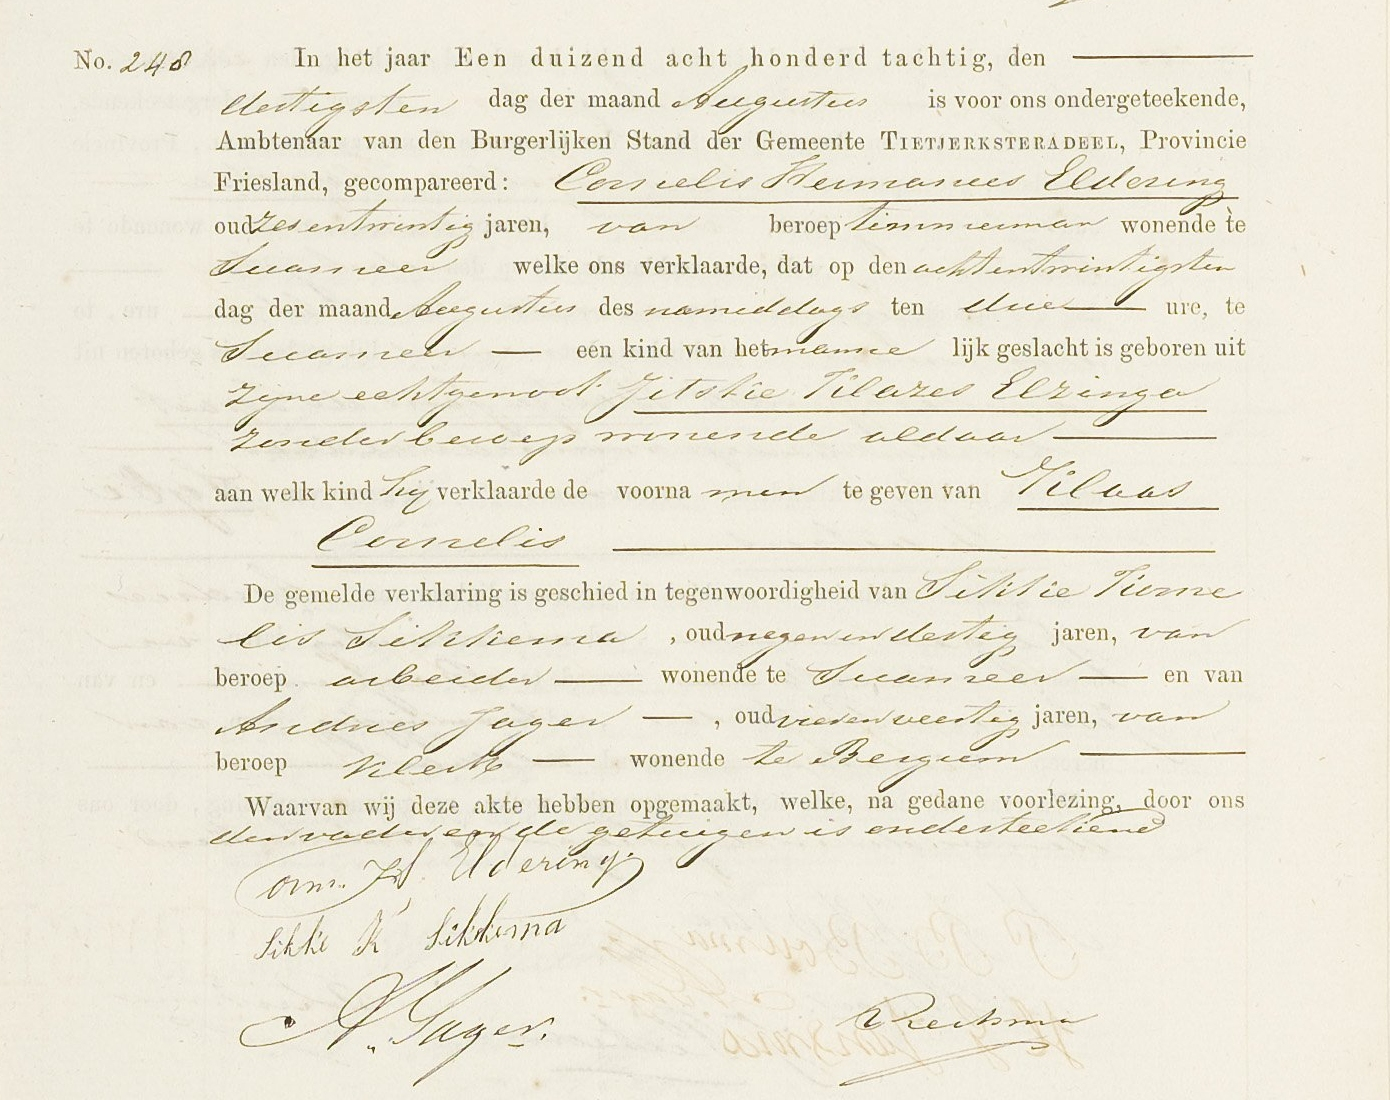 No. 248 In het jaar Een duizend acht honderd tachtig, den
dertigsten dag der maand Augustus is voor ons ondergeteekende,
Ambtenaar van den Burgerlijken Stand der Gemeente TIETJERKSTERADEEL, Provincie
Friesland, gecompareerd: Cornelis Hermanus Eldering
oud zesentwintig jaren, van beroep timmerman wonende te
Suameer welke ons verklaarde, dat op den achtentwintigsten
dag der maand Augustus des namiddags ten drie ure, te
Suameer een kind van het manne lijk geslacht is geboren uit
zijne echtgenoot Jitskie Klazes Elzinga
zonder beroep wonende aldaar
aan welk kind hij verklaarde de voorna men te geven van Klaas
Cornelis
De gemelde verklaring is geschied in tegenwoordigheid van Sikkie Korne
lis Sikkema, oud negenendertig jaren, van
beroep arbeider wonende te Suameer en van
Andries Jager, oud vierenveertig jaren, van
beroep klerk wonende te Bergum
Waarvan wij deze akte hebben opgemaakt, welke, na gedane voorlezing, door ons
den vader en de getuigen is onderteekend
Eldering
Sikke K Sikkema
A. Jager.